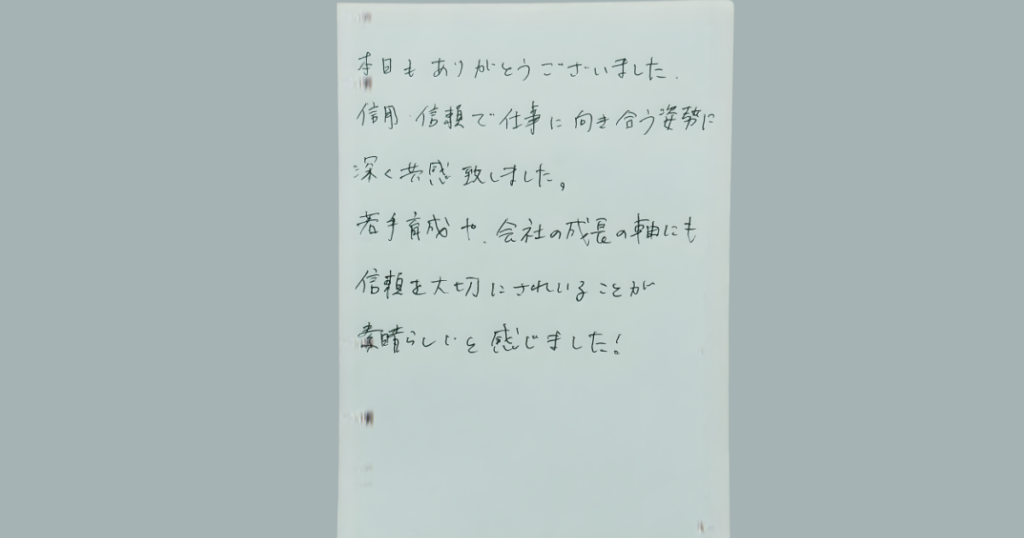 本日も ありがとうございました.
信用・信頼で仕事に向き合う姿勢に
深く共感致しました。
若手育成や、会社の成長の軸にも
信頼を大切にされいることが
素晴らしいと感じました!